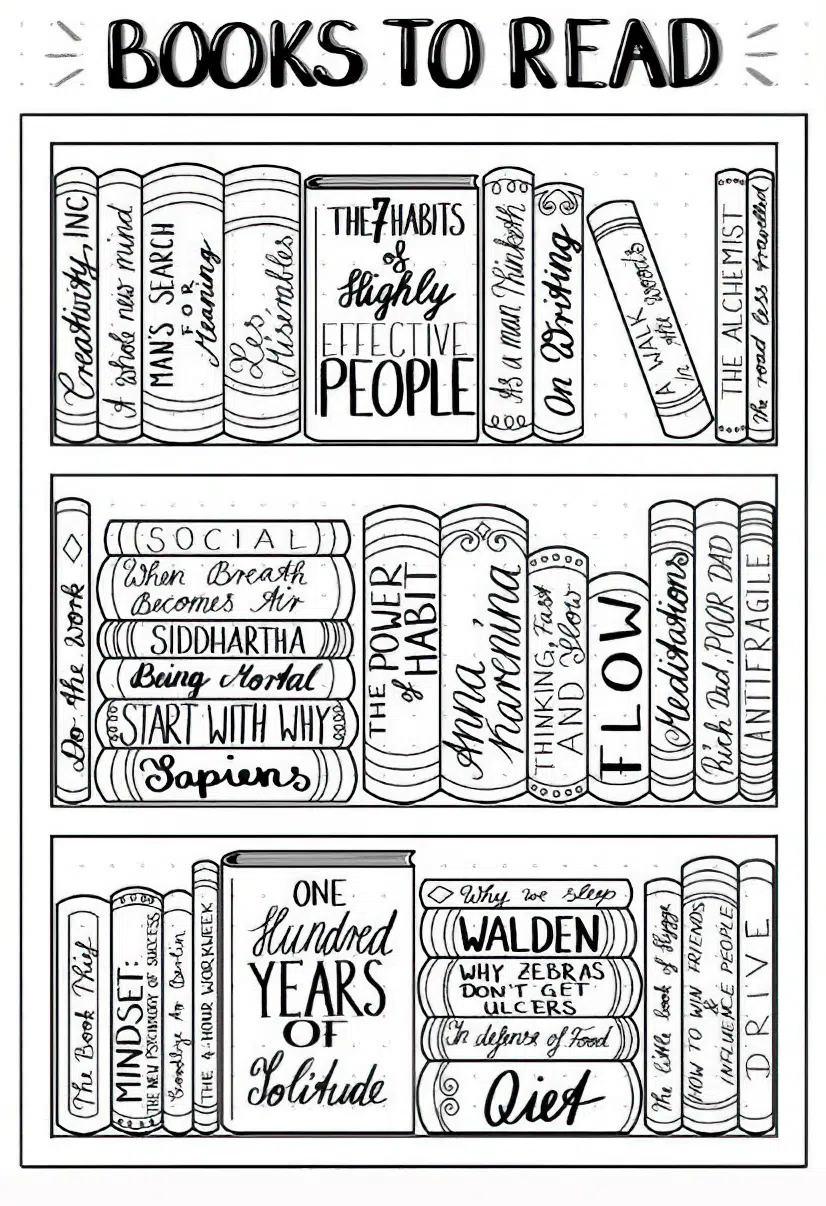 BOOKS TO READ
Creativity, INC
A whole new mind
MAN'S SEARCH
FOR
Meaning
Les
Misérables
THE 7 HABITS
of
Highly
EFFECTIVE
PEOPLE
As a man Thinketh
On Writing
A WALK
in the woods
THE ALCHEMIST
The road less travelled
Do the Work
SOCIAL
When Breath
Becomes Air
SIDDHARTHA
Being Mortal
START WITH WHY
Sapiens
THE POWER
of HABIT
Anna
Karenina
THINKING, Fast
AND Slow
FLOW
Meditations
Rich Dad, POOR DAD
ANTIFRAGILE
The Book Thief
MINDSET:
THE NEW PSYCHOLOGY OF SUCCESS
Goodbye to Berlin
THE 4-HOUR WORKWEEK
ONE
Hundred
YEARS
OF
Solitude
Why we sleep
WALDEN
WHY ZEBRAS
DON'T GET
ULCERS
In defense of Food
Quiet
The little book of Hygge
HOW TO WIN FRIENDS
&
INFLUENCE PEOPLE
DRIVE